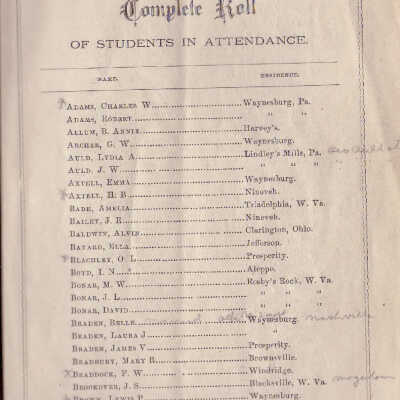 Complete Roll
OF STUDENTS IN ATTENDANCE.
NAME. RESIDENCE.
ADAMS, CHARLES W. Waynesburg, Pa.
ADAMS, ROBERT " "
ALLUM, B. ANNIE Harvey's.
ARCHER, G. W. Waynesburg.
AULD, LYDIA A. Lindley's Mills, Pa.
AULD, J. W. " " "
AXTELL, EMMA Waynesburg.
AXTELL, H. B. Nineveh.
BADE, AMELIA Triadelphia, W. Va.
BAILEY, J. E. Nineveh.
BALDWIN, ALVIN Clarington, Ohio.
BAYARD, ELLA Jefferson.
BLACHLEY, O. L. Prosperity.
BOYD, I. N. Aleppo.
BONAR, M. W. Rosby's Rock, W. Va.
BONAR, J. L. " " "
BONAR, DAVID " " "
BRADEN, BELLE Waynesburg. Nashville
BRADEN, LAURA J. "
BRADEN, JAMES V. Prosperity.
BRADBURY, MARY R. Brownsville.
BRADDOCK, F. W. Windridge.
BROOKOVER, J. S. Blacksville, W. Va.
BROWN, LEWIS P. Waynesburg.